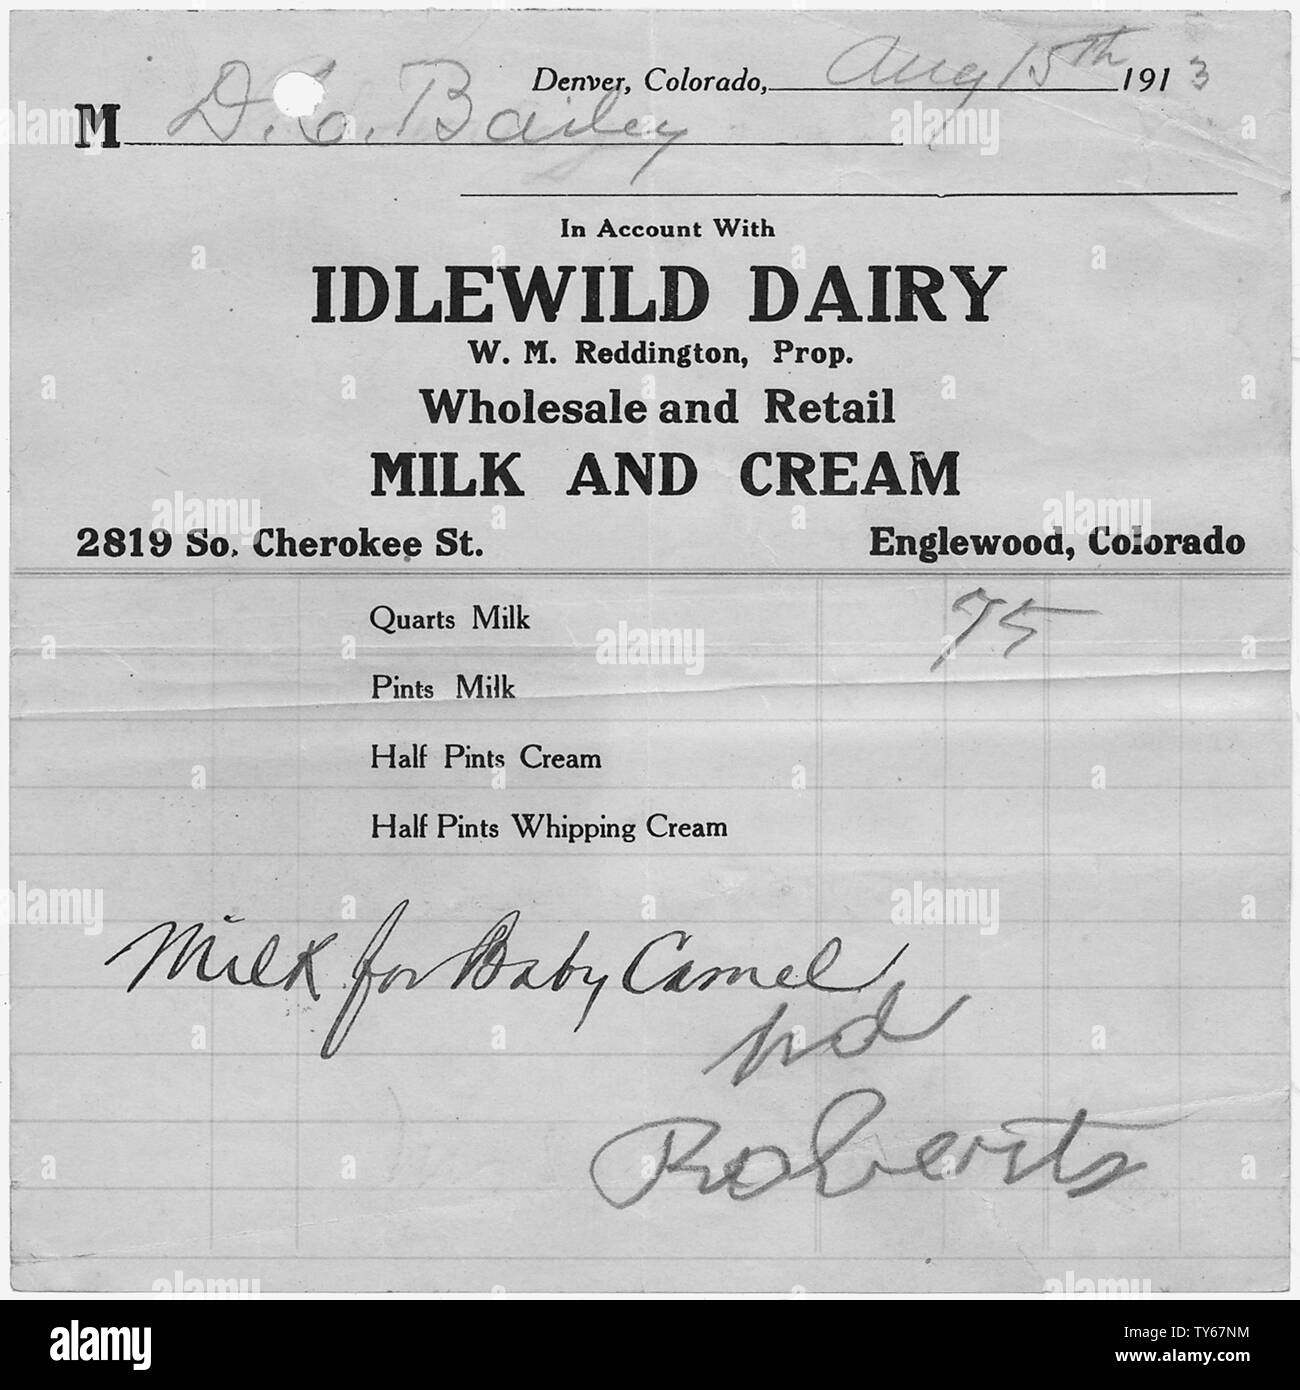 Denver, Colorado, Aug 15th 1913
M D. C. Bailey
In Account With
IDLEWILD DAIRY
W. M. Reddington, Prop.
Wholesale and Retail
MILK AND CREAM
2819 So. Cherokee St. Englewood, Colorado
Quarts Milk 75
Pints Milk
Half Pints Cream
Half Pints Whipping Cream
Milk for Baby Camel
pd
Roberts
alamy
alamy stock photo
TY67NM
www.alamy.com